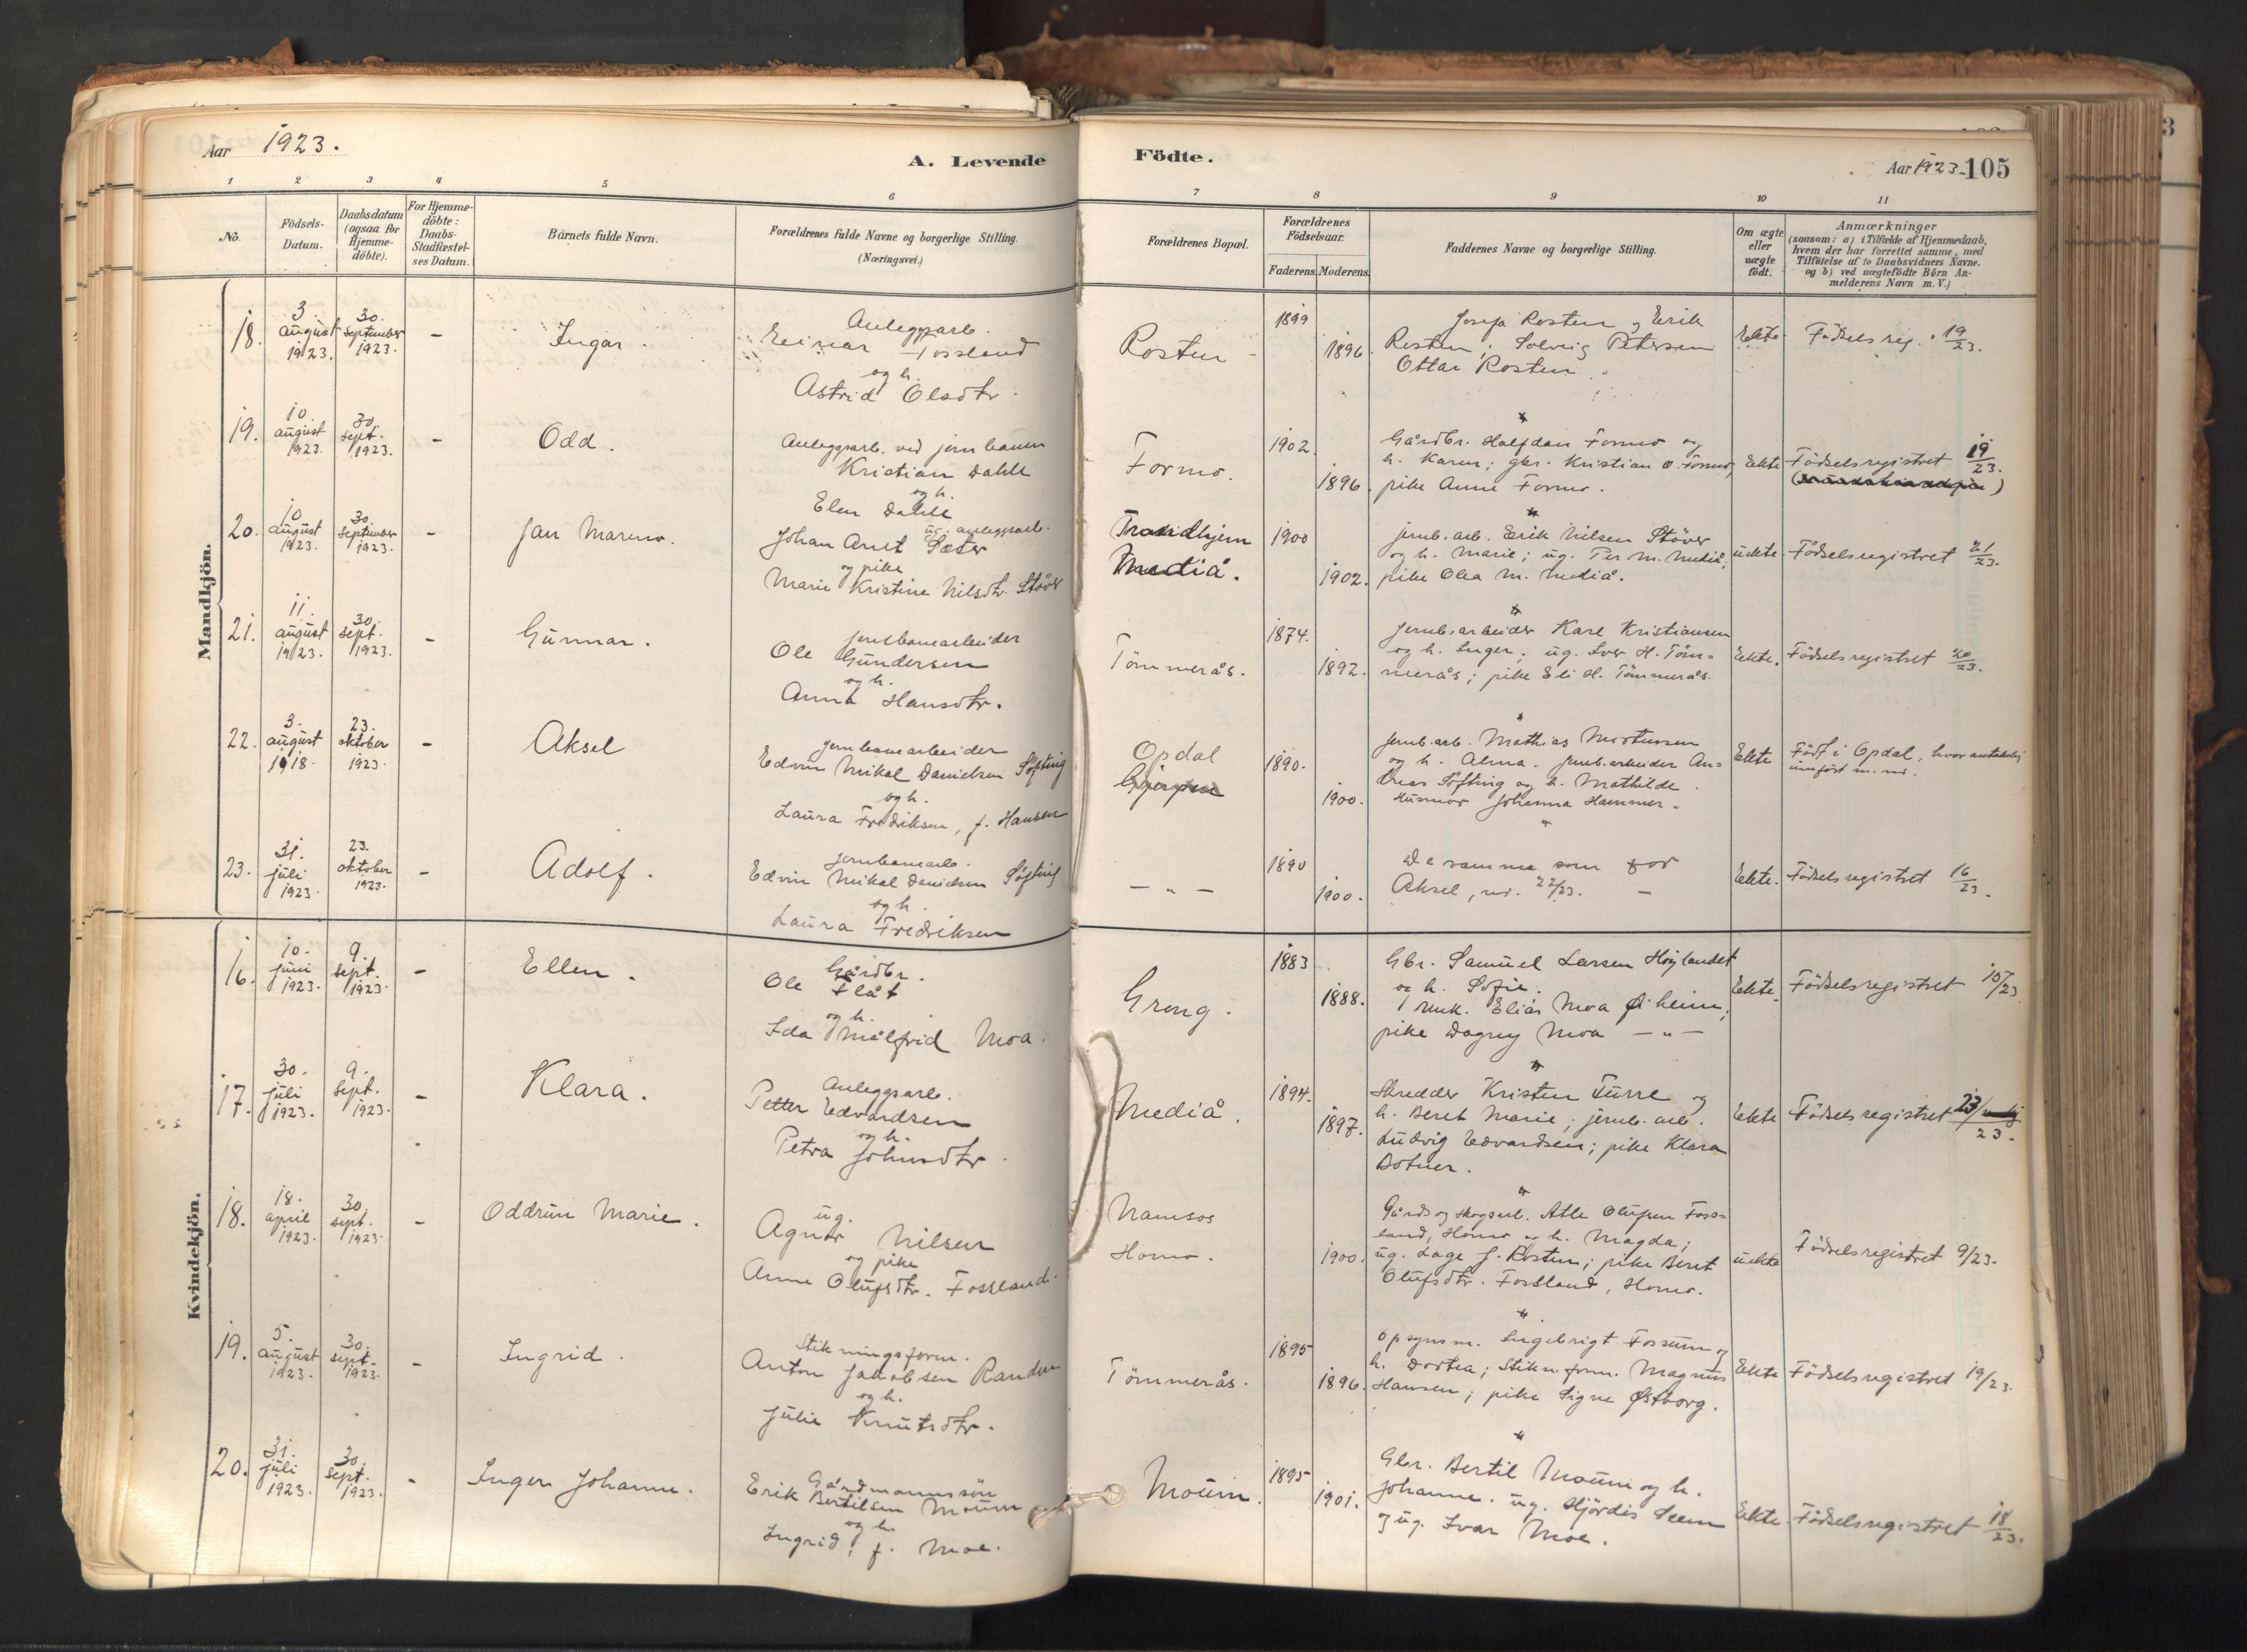 Aar 1923.
A. Levende Födte.
Aar 1923 105
1 2 3 4 5 6 7 8 9 10 11
No.
Födsels-
Datum.
Daabsdatum
(ogsaa for
Hjemme-
döbte).
For Hjemme-
döbte:
Daabs-
Stadfæstel-
ses Datum.
Barnets fulde Navn.
Forældrenes fulde Navne og borgerlige Stilling.
(Næringsvei.)
Forældrenes Bopæl.
Forældrenes
Födselsaar.
Faderens. Moderens.
Faddernes Navne og borgerlige Stilling.
Om ægte
eller
uægte
födt.
Anmærkninger
(saasom: a) i Tilfælde af Hjemmedaab,
hvem der har forrettet samme, med
Tilföielse af to Daabsvidners Navne.
og b) ved uægtefödte Börn An-
melderens Navn m.V.)
Mandkjön.
18.
3.
august
1923.
30.
September
1923.
-
Ingar.
Anleggsarb.
Einar Fossland
og h.
Astrid Olsdtr.
Rosten
1899
1896.
Josefa Rosten og Erik
Rosten; Solveig Petersen
Ottar Rosten.
Ekte.
Födselsreg. 19/23.
19.
10.
august
1923.
30.
sept.
1923.
-
Odd.
Anleggsarb. ved jernbanen
Kristian Dahle
og h.
Elen Dahle
Formo.
1902.
1896.
Gårdbr. Halfdan Formo og
h. Karen; gbr. Kristian O. Formo,
pike Anne Formo.
Ekte
Födselsregistret 19/23.
20.
10.
august
1923.
30.
September
1923.
-
Jan Mareno.
ug. anleggsarb.
Johan Arnt Sæter
og pike
Marie Kristine Nilsdtr. Stöver
Trondhjem
Mediå.
1900
1902.
jernb. arb. Erik Nilsen Stöver
og h. Marie; ug. Per M. Mediå;
pike Olea M. Mediå.
uekte
Födselsregistret 21/23.
21.
11.
august
1923.
30.
sept.
1923.
-
Gunnar.
jernbanearbeider
Ole Gundersen
og h.
Anna Hansdtr.
Tömmerås.
1874.
1892.
Jernb. arbeider Karl Kristiansen
og h. Inger; ug. Iver H. Töm-
merås; pike Eli H. Tömmerås.
Ekte.
Födselsregistret 20/23.
22.
3.
august
1918.
23.
oktober
1923.
-
Aksel
jernbanearbeider
Edvin Mikal Danielsen Söfting
og h.
Laura Fredriksen, f. Hansen
Opdal
1890.
1900.
Jernb. arb. Mathias Mortensen
og h. Alma. jernb. arbeider An-
dreas Söfting og h. Mathilde.
Husmor Johanna Hammer.
Ekte
Födt i Opdal, hvor antakelig
innfört m. nr.
23.
31.
juli
1923.
23.
oktober
1923.
-
Adolf.
jernbanearb.
Edvin Mikal Danielsen Söfting
og h.
Laura Fredriksen
— " —
1890
1900.
De samme som for
Aksel, nr. 22/23. —
Ekte.
Födselsregistret 16/23.
Kvindekjön.
16.
10.
juni
1923.
9.
sept.
1923.
-
Ellen.
Gårdbr.
Ole Flåt
og h.
Ida Målfrid Moa.
Grong.
1883
1888.
Gbr. Samuel Larsen Höylandet
og h. Sofie.
Elias Moa Ø.heim;
pike Dagny Moa — " —
Ekte.
Födselsregistret 107/23
17.
30.
juli
1923.
9.
sept.
1923.
-
Klara.
Anleggsarb.
Petter Edvardsen
og h.
Petra Johnsdtr.
Mediå.
1894.
1897.
Skredder Kristen Turre og
h. Beret Marie; jernb. arb.
Ludvig Edvardsen; pike Klara
Botner.
Ekte
Födselsregistret 23/23.
18.
18.
april
1923.
30.
sept.
1923.
-
Oddrun Marie.
ug.
Agnar Nilsen
og pike
Anne Olufsdtr. Fossland.
Namsos
Homo.
1900.
Gårds og skogsarb. Atle Olufsen Foss-
land, Homo og h. Magda;
ug. Lage J. Rosten; pike Beret
Olufsdtr. Fossland, Homo.
uekte
Födselsregistret 9/23.
19.
5.
august
1923.
30.
sept.
1923.
-
Ingrid.
Stikningsform.
Anton Jakobsen Randen
og h.
Julie Knutsdtr.
Tömmerås.
1895
1896.
opsynsm. Ingebrigt Fossum og
h. Dortea; Stikn. form. Magnus
Hansen; pike Signe Østborg.
Ekte
Födselsregistret 19/23.
20.
31.
juli
1923.
30.
sept.
1923.
-
Inger Johanne.
Gårdmannssön
Erik Bertilsen Moum
og h.
Ingrid, f. Moe.
Moum.
1895
1901.
Gbr. Bertil Moum og h.
Johanne. ug. Hjördis Seem
og ug. Ivar Moe.
Ekte.
Födselsregistret 18/23.